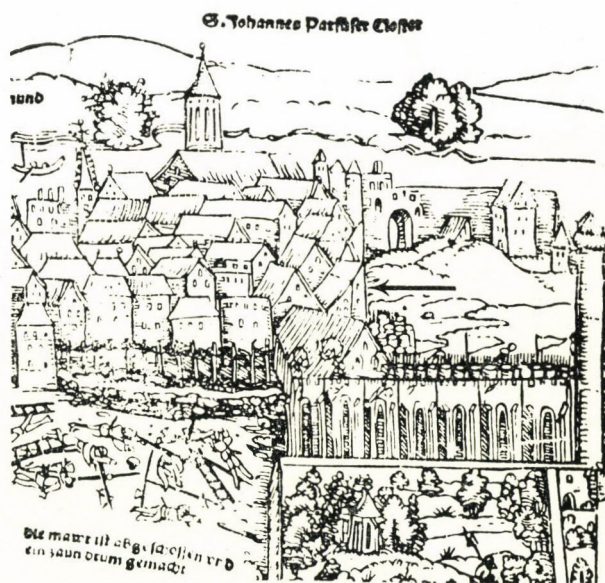 S. Johannes Parfuser Closter
mund
Die mawr ist abgeschossen und
ein zaun drum gemacht